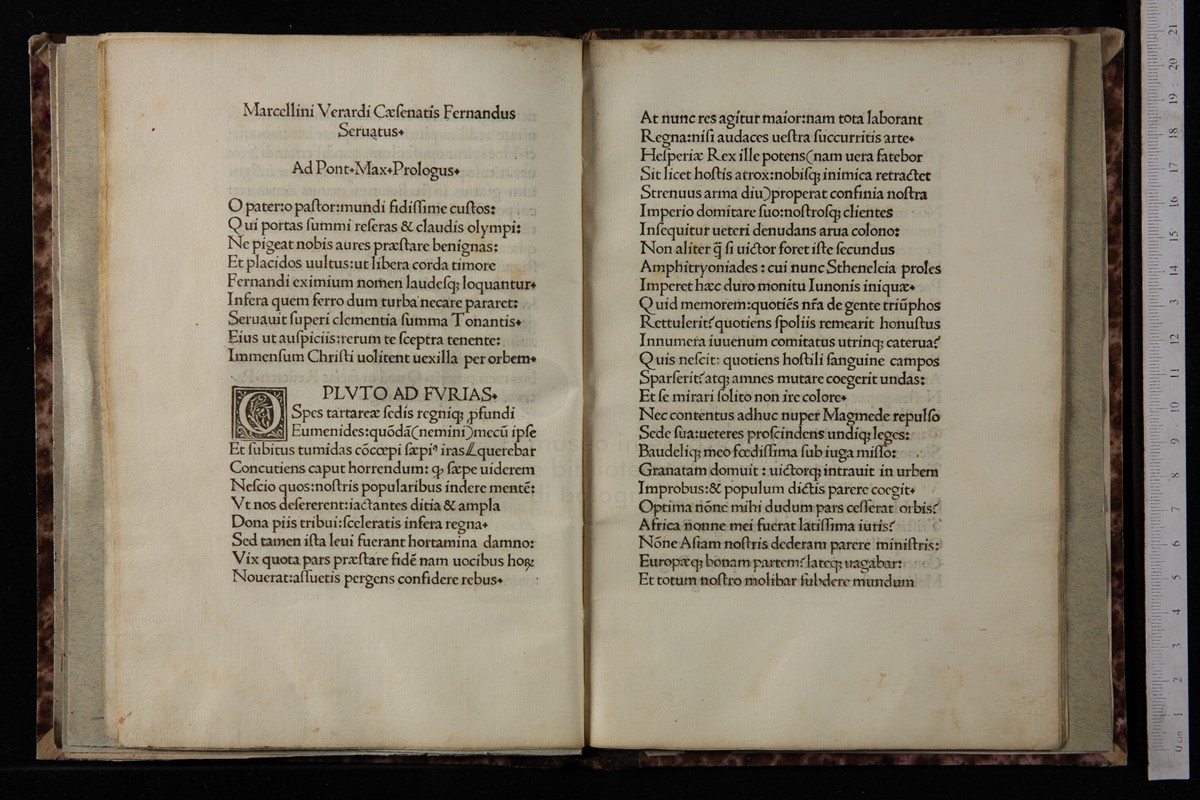 Marcellini Verardi Cæſenatis Fernandus
Seruatus.
Ad Pont.Max.Prologus.
O pater:o paſtor:mundi fidiſſime cuſtos:
Qui portas ſummi reſeras & claudis olympi:
Ne pigeat nobis aures præſtare benignas:
Et placidos uultus:ut libera corda timore
Fernandi eximium nomen laudeſq; loquantur.
Infera quem ferro dum turba necare pararet:
Seruauit ſuperi clementia ſumma Tonantis.
Eius ut auſpiciis:rerum te ſceptra tenente:
Immenſum Chriſti uolitent uexilla per orbem.
PLVTO AD FVRIAS.
O Spes tartareæ ſedis regniq; ꝓfundi
Eumenides:quōdā(nemini)mecū ipſe
Et ſubitus tumidas cōcœpi ſæpiꝰ iras querebar
Concutiens caput horrendum: ꝙ ſæpe uiderem
Neſcio quos:noſtris popularibus indere mentē:
Vt nos deſererent:iactantes ditia & ampla
Dona piis tribui:ſceleratis infera regna.
Sed tamen iſta leui fuerant hortamina damno:
Vix quota pars præſtare fidē nam uocibus hoꝝ
Nouerat:aſſuetis pergens confidere rebus.
At nunc res agitur maior:nam tota laborant
Regna:niſi audaces ueſtra ſuccurritis arte.
Heſperiæ Rex ille potens(nam uera fatebor
Sit licet hoſtis atrox:nobiſq; inimica retractet
Strenuus arma diu)properat confinia noſtra
Imperio domitare ſuo:noſtroſq; clientes
Inſequitur ueteri denudans arua colono:
Non aliter q̄ ſi uictor foret iſte ſecundus
Amphitryoniades: cui nunc Stheneleia proles
Imperet hæc duro monitu Iunonis iniquæ.
Quid memorem:quotiēs nr̄a de gente triūphos
Rettulerit?quotiens ſpoliis remearit honuſtus
Innumera iuuenum comitatus utrinq; caterua?
Quis neſcit: quotiens hoſtili ſanguine campos
Sparſerit?atq; amnes mutare coegerit undas:
Et ſe mirari ſolito non ire colore.
Nec contentus adhuc nuper Magmede repulſo
Sede ſua:ueteres proſcindens undiq; leges:
Baudeliq; meo fœdiſſima ſub iuga miſſo:
Granatam domuit: uictorq; intrauit in urbem
Improbus:& populum dictis parere coegit.
Optima nōne mihi dudum pars ceſſerat orbis?
Africa nonne mei fuerat latiſſima iuris?
Nōne Aſiam noſtris dederam parere miniſtris:
Europæq; bonam partem?lateq; uagabar:
Et totum noſtro molibar ſubdere mundum